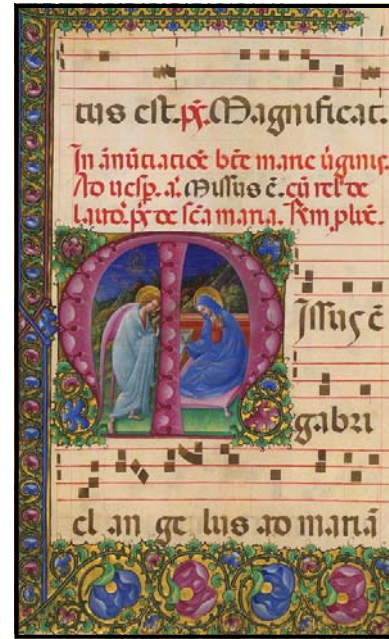 tus est. p̄s. Magnificat.
In ānūtiatiōē bt̄e marie ūginis.
Ad uesp̄. a. Missus ē. cū rel' de
laud'. p̄s de sc̄a maria.
M Issus ē
gabri
el an ge lus ad mariā